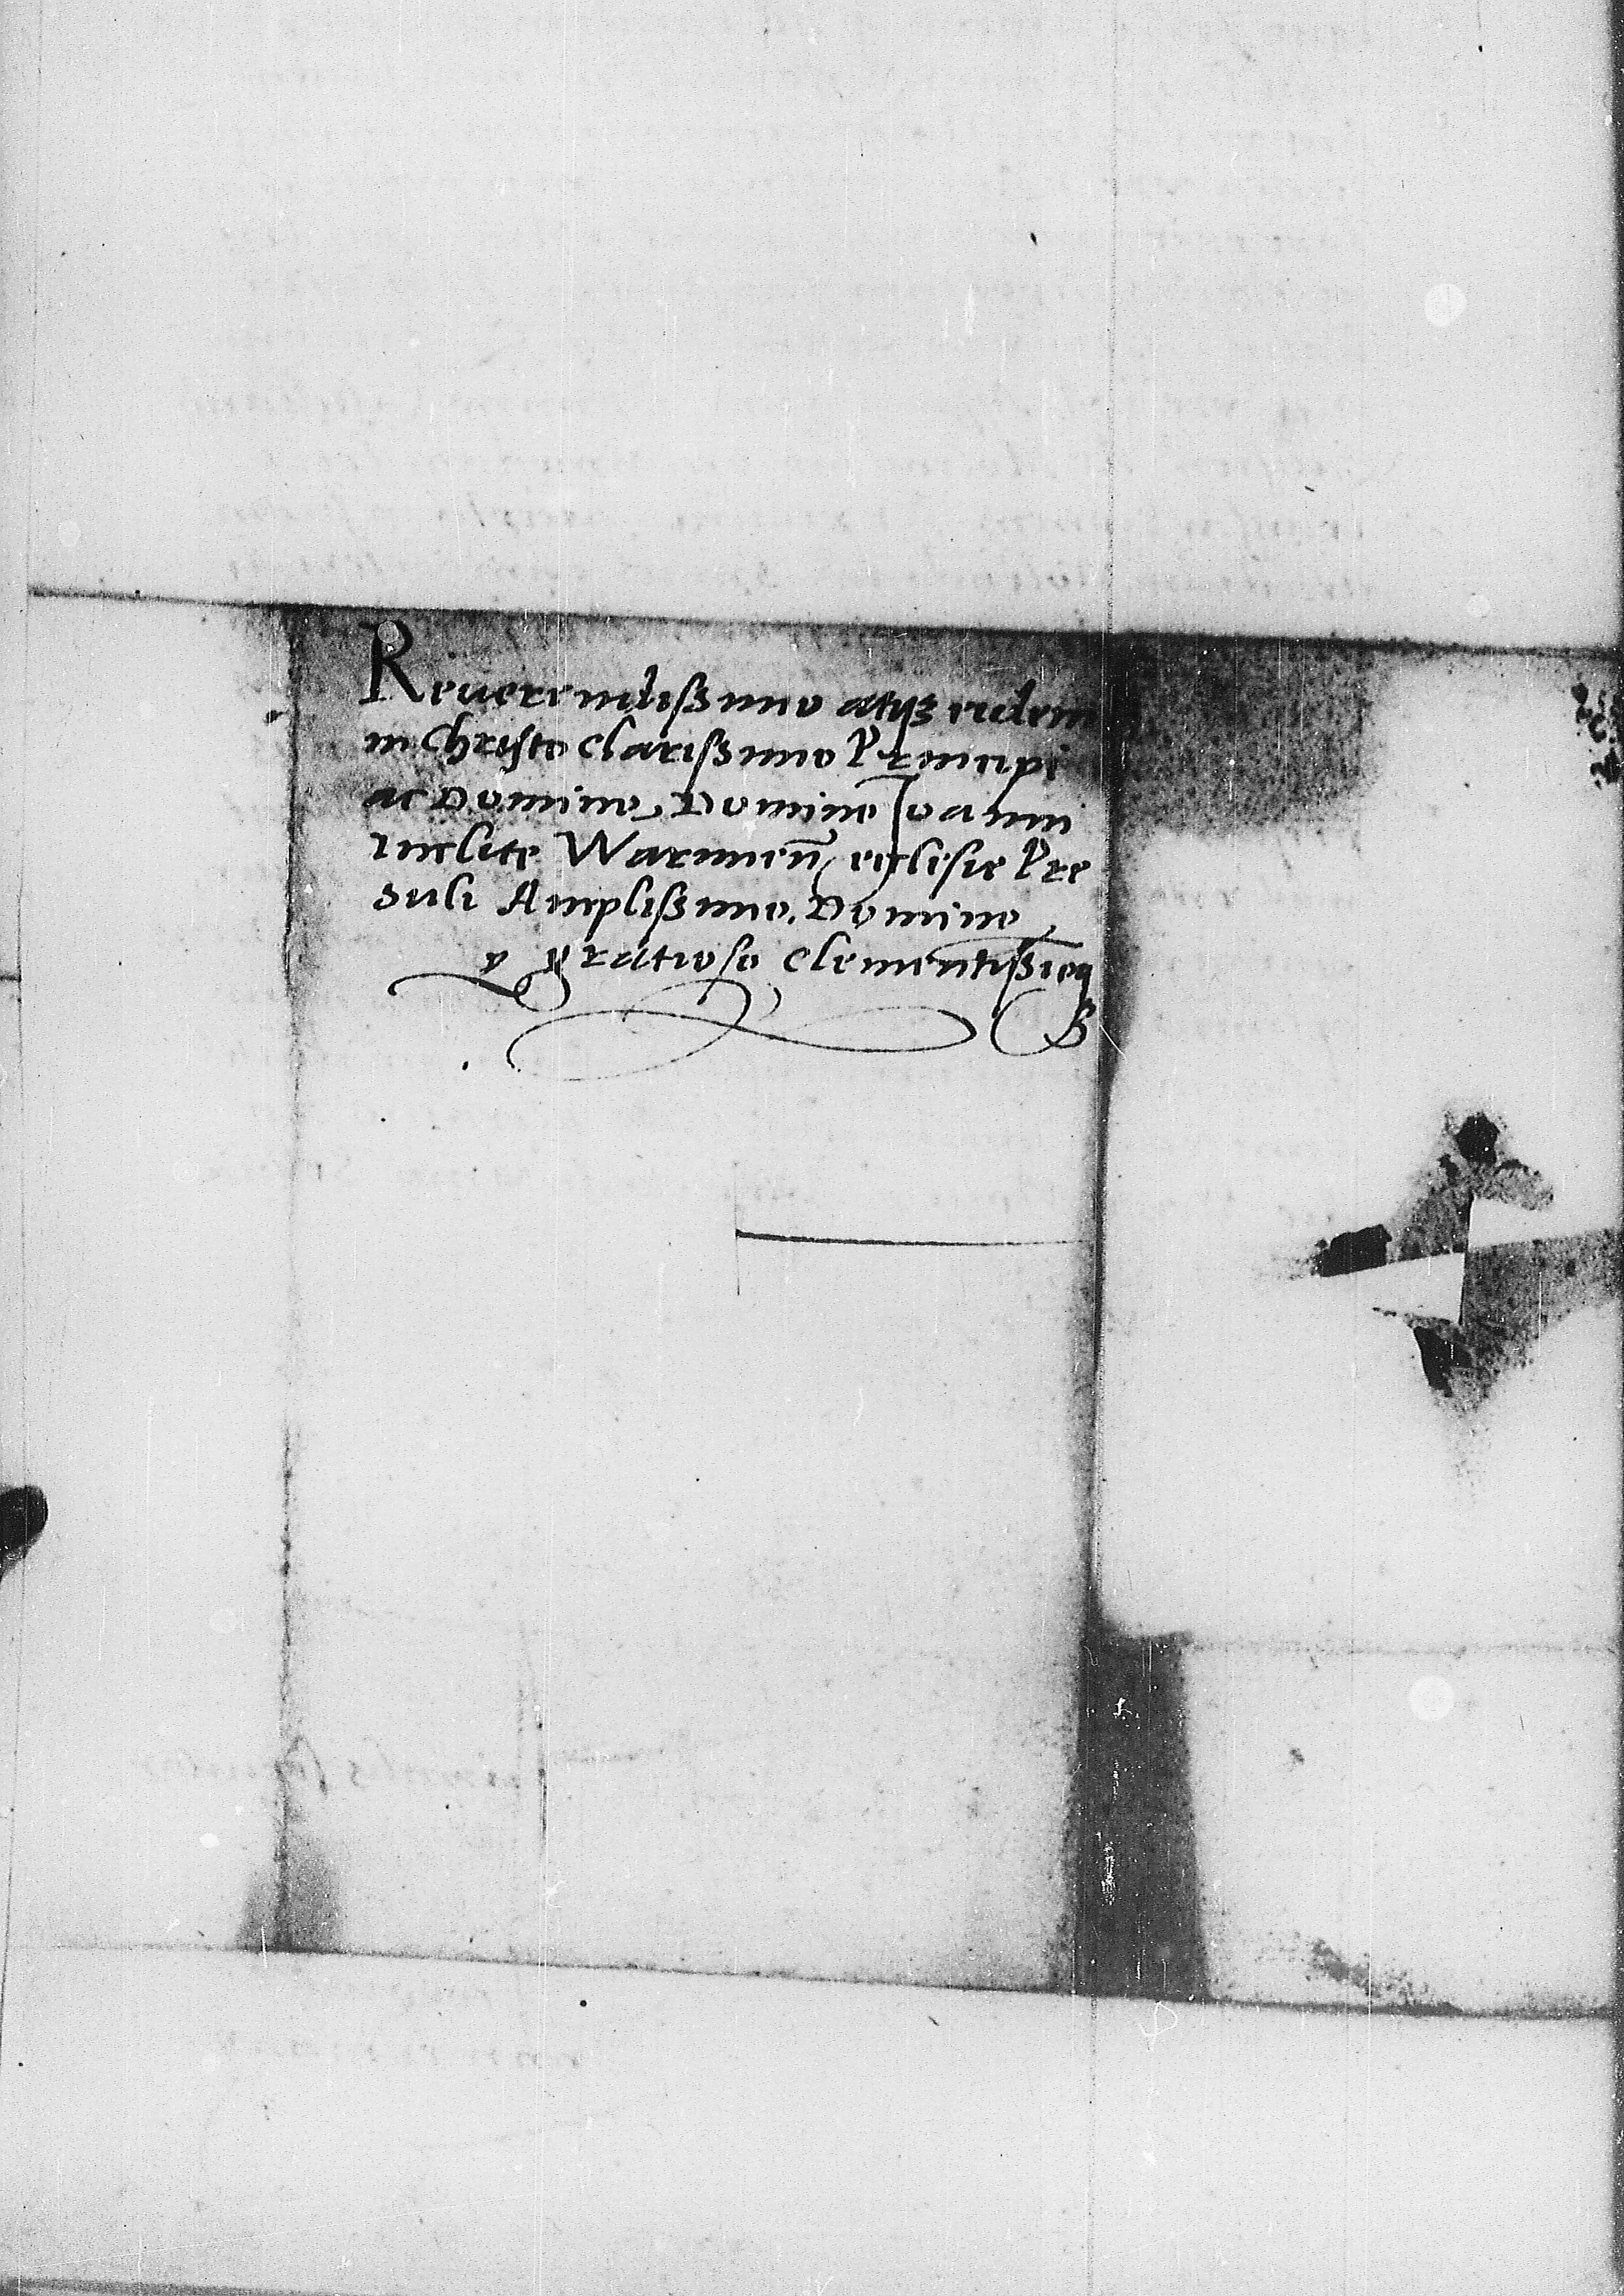 Reuerendissimo atque eidem
in Christo Clarissimo Principi
ac Domino, Domino Joanni
Inclite Warmien̄ ecclesie Pre
suli Amplissimo. Domino
gratioso Clementissi